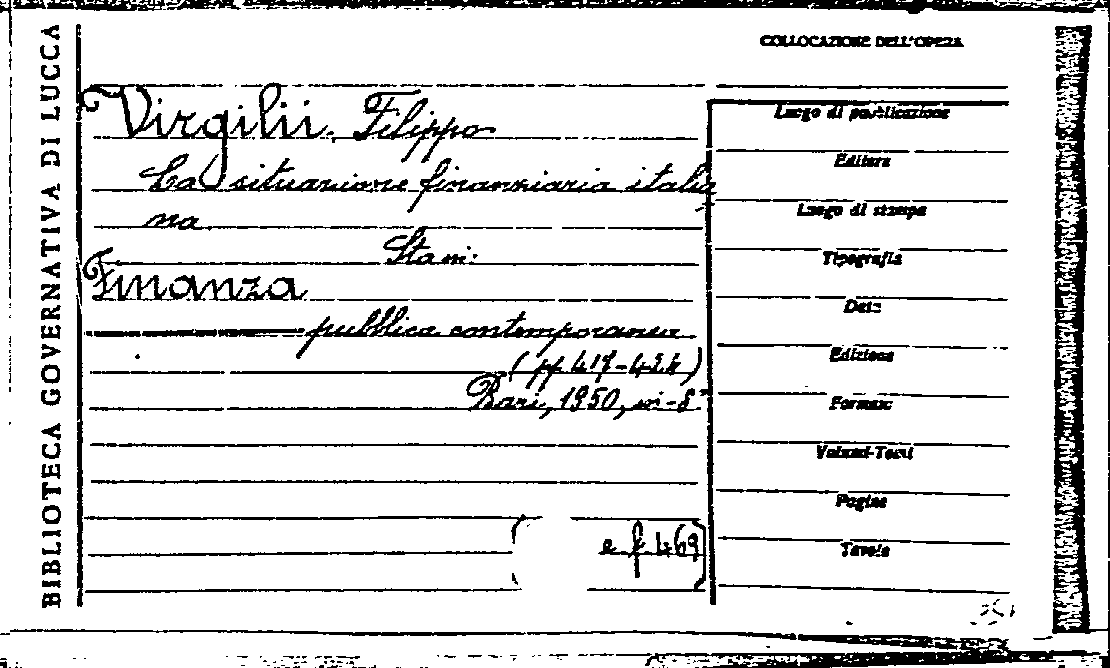 BIBLIOTECA GOVERNATIVA DI LUCCA
COLLOCAZIONE DELL'OPERA
Virgilii, Filippo
La situazione finanziaria italia
na
Stam:
Finanza
pubblica contemporanea
(pp 417-424)
Bari, 1950, in-8°
e f 469
Luogo di pubblicazione
Editore
Luogo di stampa
Tipografia
Data
Edizione
Formato
Volumi-Tomi
Pagine
Tavole